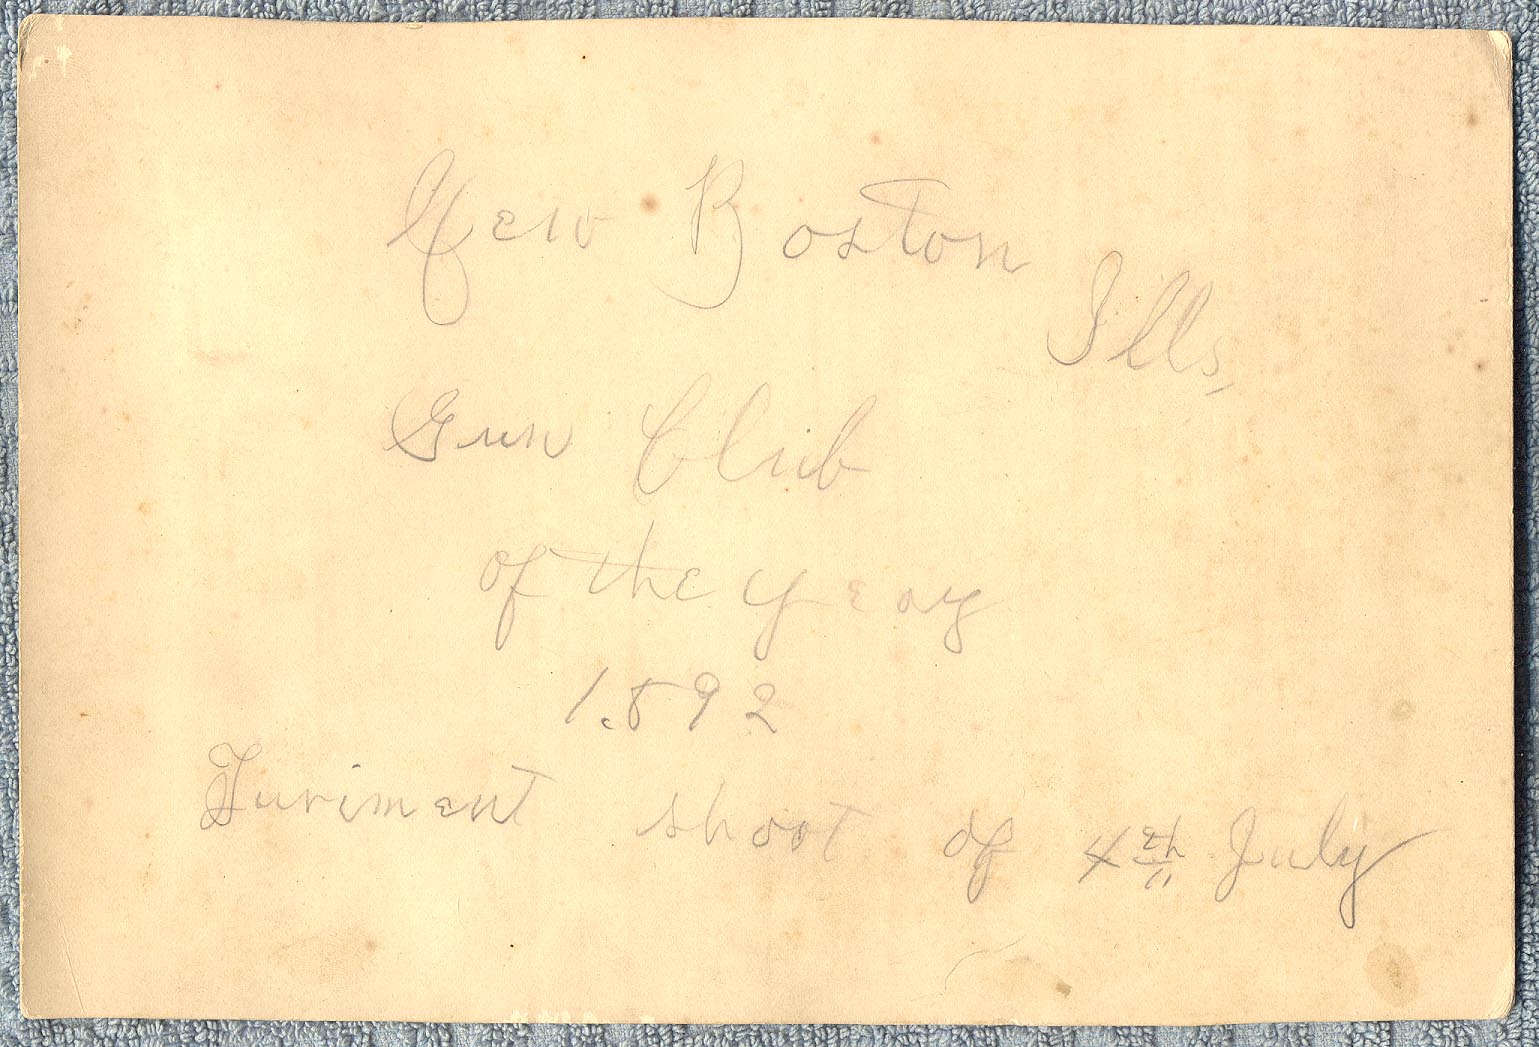 New Boston
Ills,
Gun Club
of the year
1892
Turiment shoot of 4th July